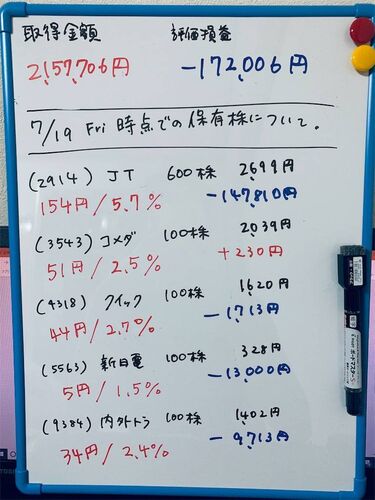 取得金額 評価損益
2,157,706円 -172,006円
7/19 Fri 時点での保有株について。
(2914) JT 600株 2699円
154円/5.7% -147,810円
(3543) コメダ 100株 2039円
51円/2.5% +230円
(4318) クイック 100株 1620円
44円/2.7% -1713円
(5563) 新日電 100株 328円
5円/1.5% -13,000円
(9384) 内外トラ 100株 1402円
34円/2.4% -9713円
ボードマスターS